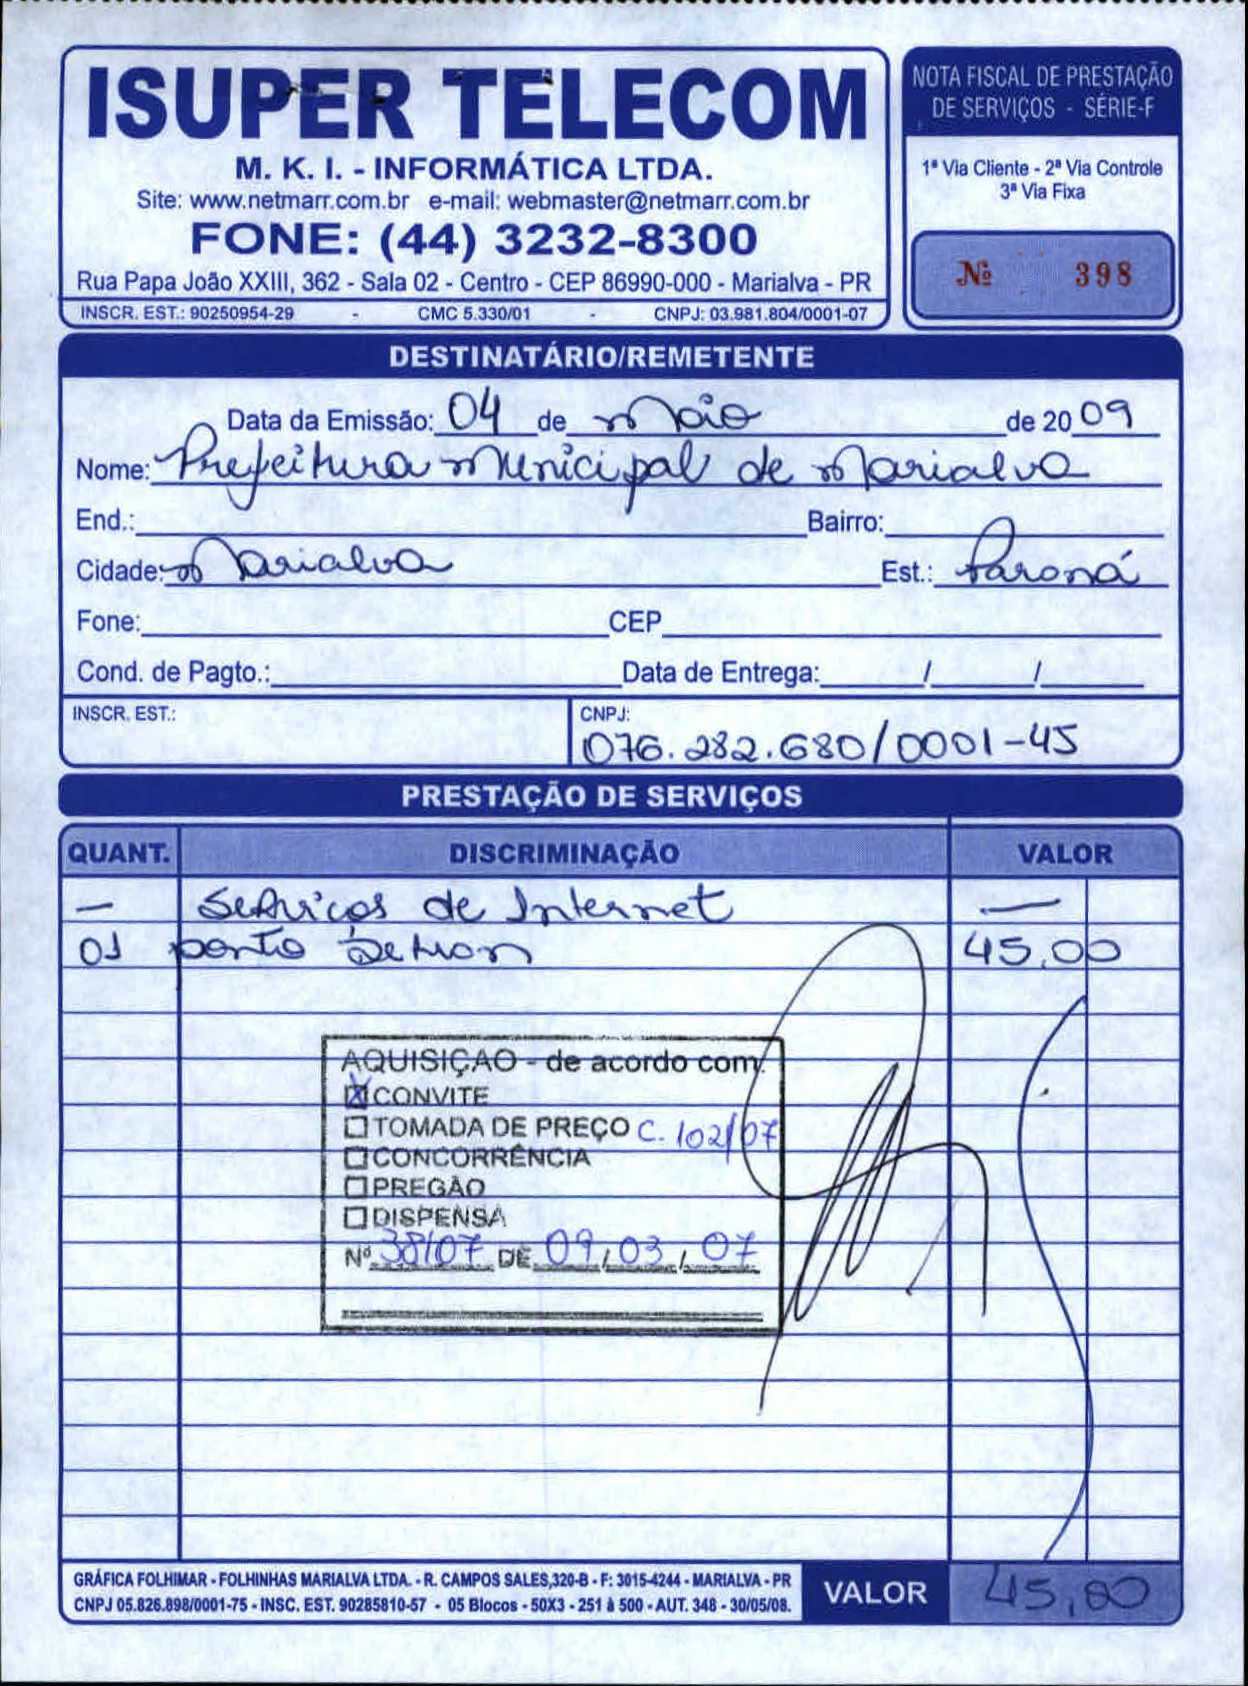 ISUPER TELECOM
M. K. I. - INFORMÁTICA LTDA.
Site: www.netmarr.com.br e-mail: webmaster@netmarr.com.br
FONE: (44) 3232-8300
Rua Papa João XXIII, 362 - Sala 02 - Centro - CEP 86990-000 - Marialva - PR
INSCR. EST.: 90250954-29 - CMC 5.330/01 - CNPJ: 03.981.804/0001-07
NOTA FISCAL DE PRESTAÇÃO
DE SERVIÇOS - SÉRIE-F
1ª Via Cliente - 2ª Via Controle
3ª Via Fixa
Nº 398
DESTINATÁRIO/REMETENTE
Data da Emissão: 04 de Maio de 2009
Nome: Prefeitura Municipal de Marialva
End.: Bairro:
Cidade: Marialva Est.: Paraná
Fone: CEP
Cond. de Pagto.: Data de Entrega: / /
INSCR. EST.: CNPJ:
076.282.680/0001-45
PRESTAÇÃO DE SERVIÇOS
QUANT. DISCRIMINAÇÃO VALOR
— Serviços de Internet —
01 ponto Detran 45,00
AQUISIÇÃO - de acordo com:
☒ CONVITE
☐ TOMADA DE PREÇO C. 102/07
☐ CONCORRÊNCIA
☐ PREGÃO
☐ DISPENSA
Nº 38/07 DE 09/03/07
GRÁFICA FOLHIMAR - FOLHINHAS MARIALVA LTDA. - R. CAMPOS SALES,320-B - F: 3015-4244 - MARIALVA - PR
CNPJ 05.826.898/0001-75 - INSC. EST. 90285810-57 - 05 Blocos - 50X3 - 251 à 500 - AUT. 348 - 30/05/08.
VALOR 45,00